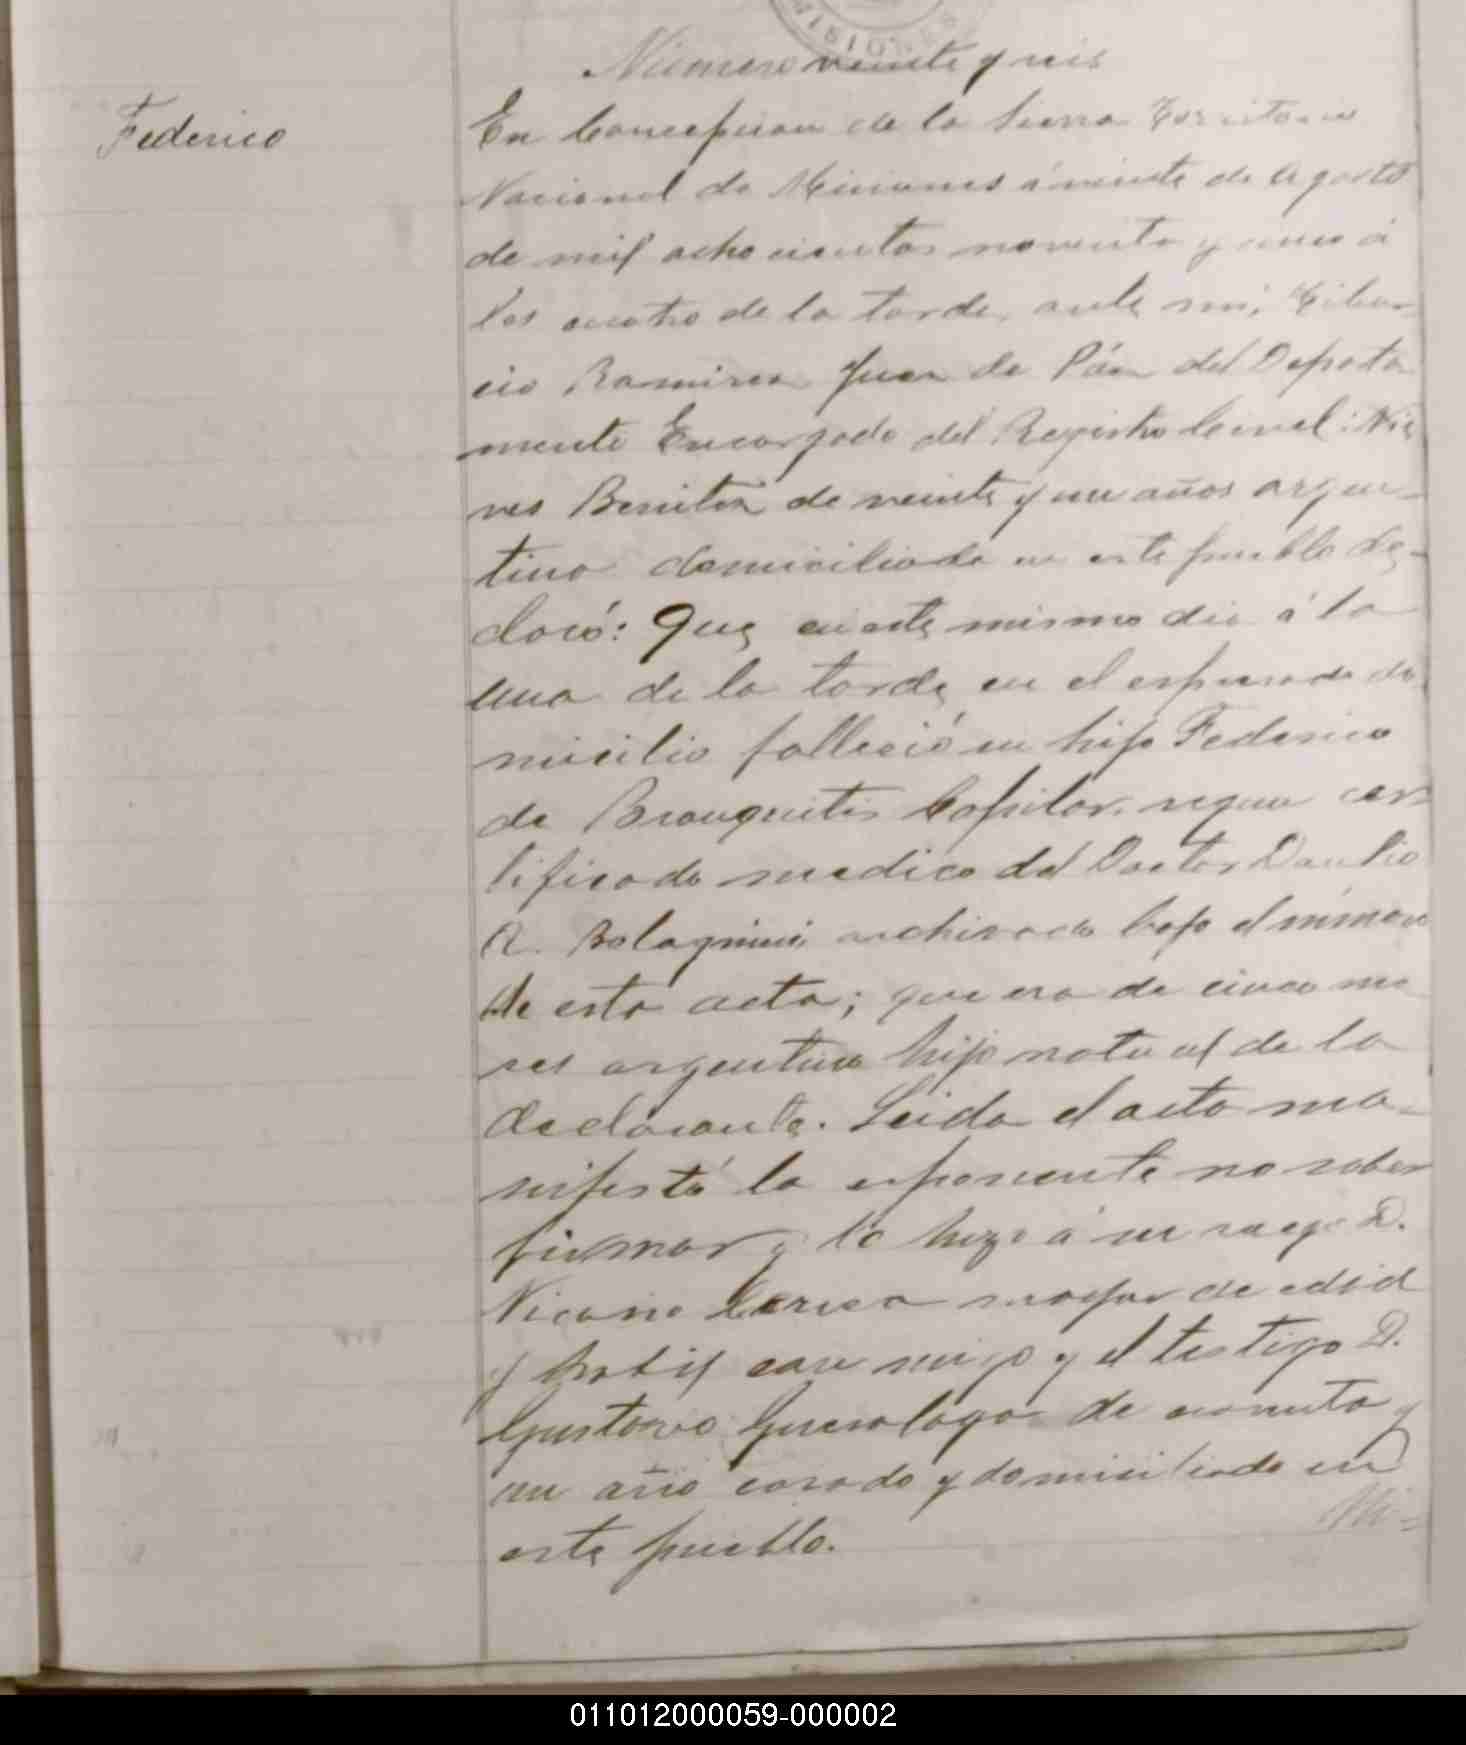 Numero veinte y seis
Federico
En Concepcion de la Sierra Territorio
Nacional de Misiones á veinte de Agosto
de mil ocho cientos noventa y cinco á
las cuatro de la tarde, ante mi, Tibur-
cio Ramires Juez de Páz del Departa
mento Encargado del Registro Civil: Nie
ves Benitez de veinte y un años argen-
tina domiciliada en este pueblo de-
claró: Que en este mismo dia á la
una de la tarde en el espresado do
micilio falleció su hijo Federico
de Bronquitis Capilar. segun cer
tificado medico del Doctor
R. Bolognini archivado bajo el número
de esta acta; que era de cinco me
ses argentino hijo natural de la
declarante. Leida el acta ma-
nifestó la esponente no saber
firmar y lo hizo á su ruego D.
mayor de edad
y habil con migo y el testigo D.
Gustavo de cuarenta y
un año casado y domiciliado en
este pueblo.
011012000059-000002